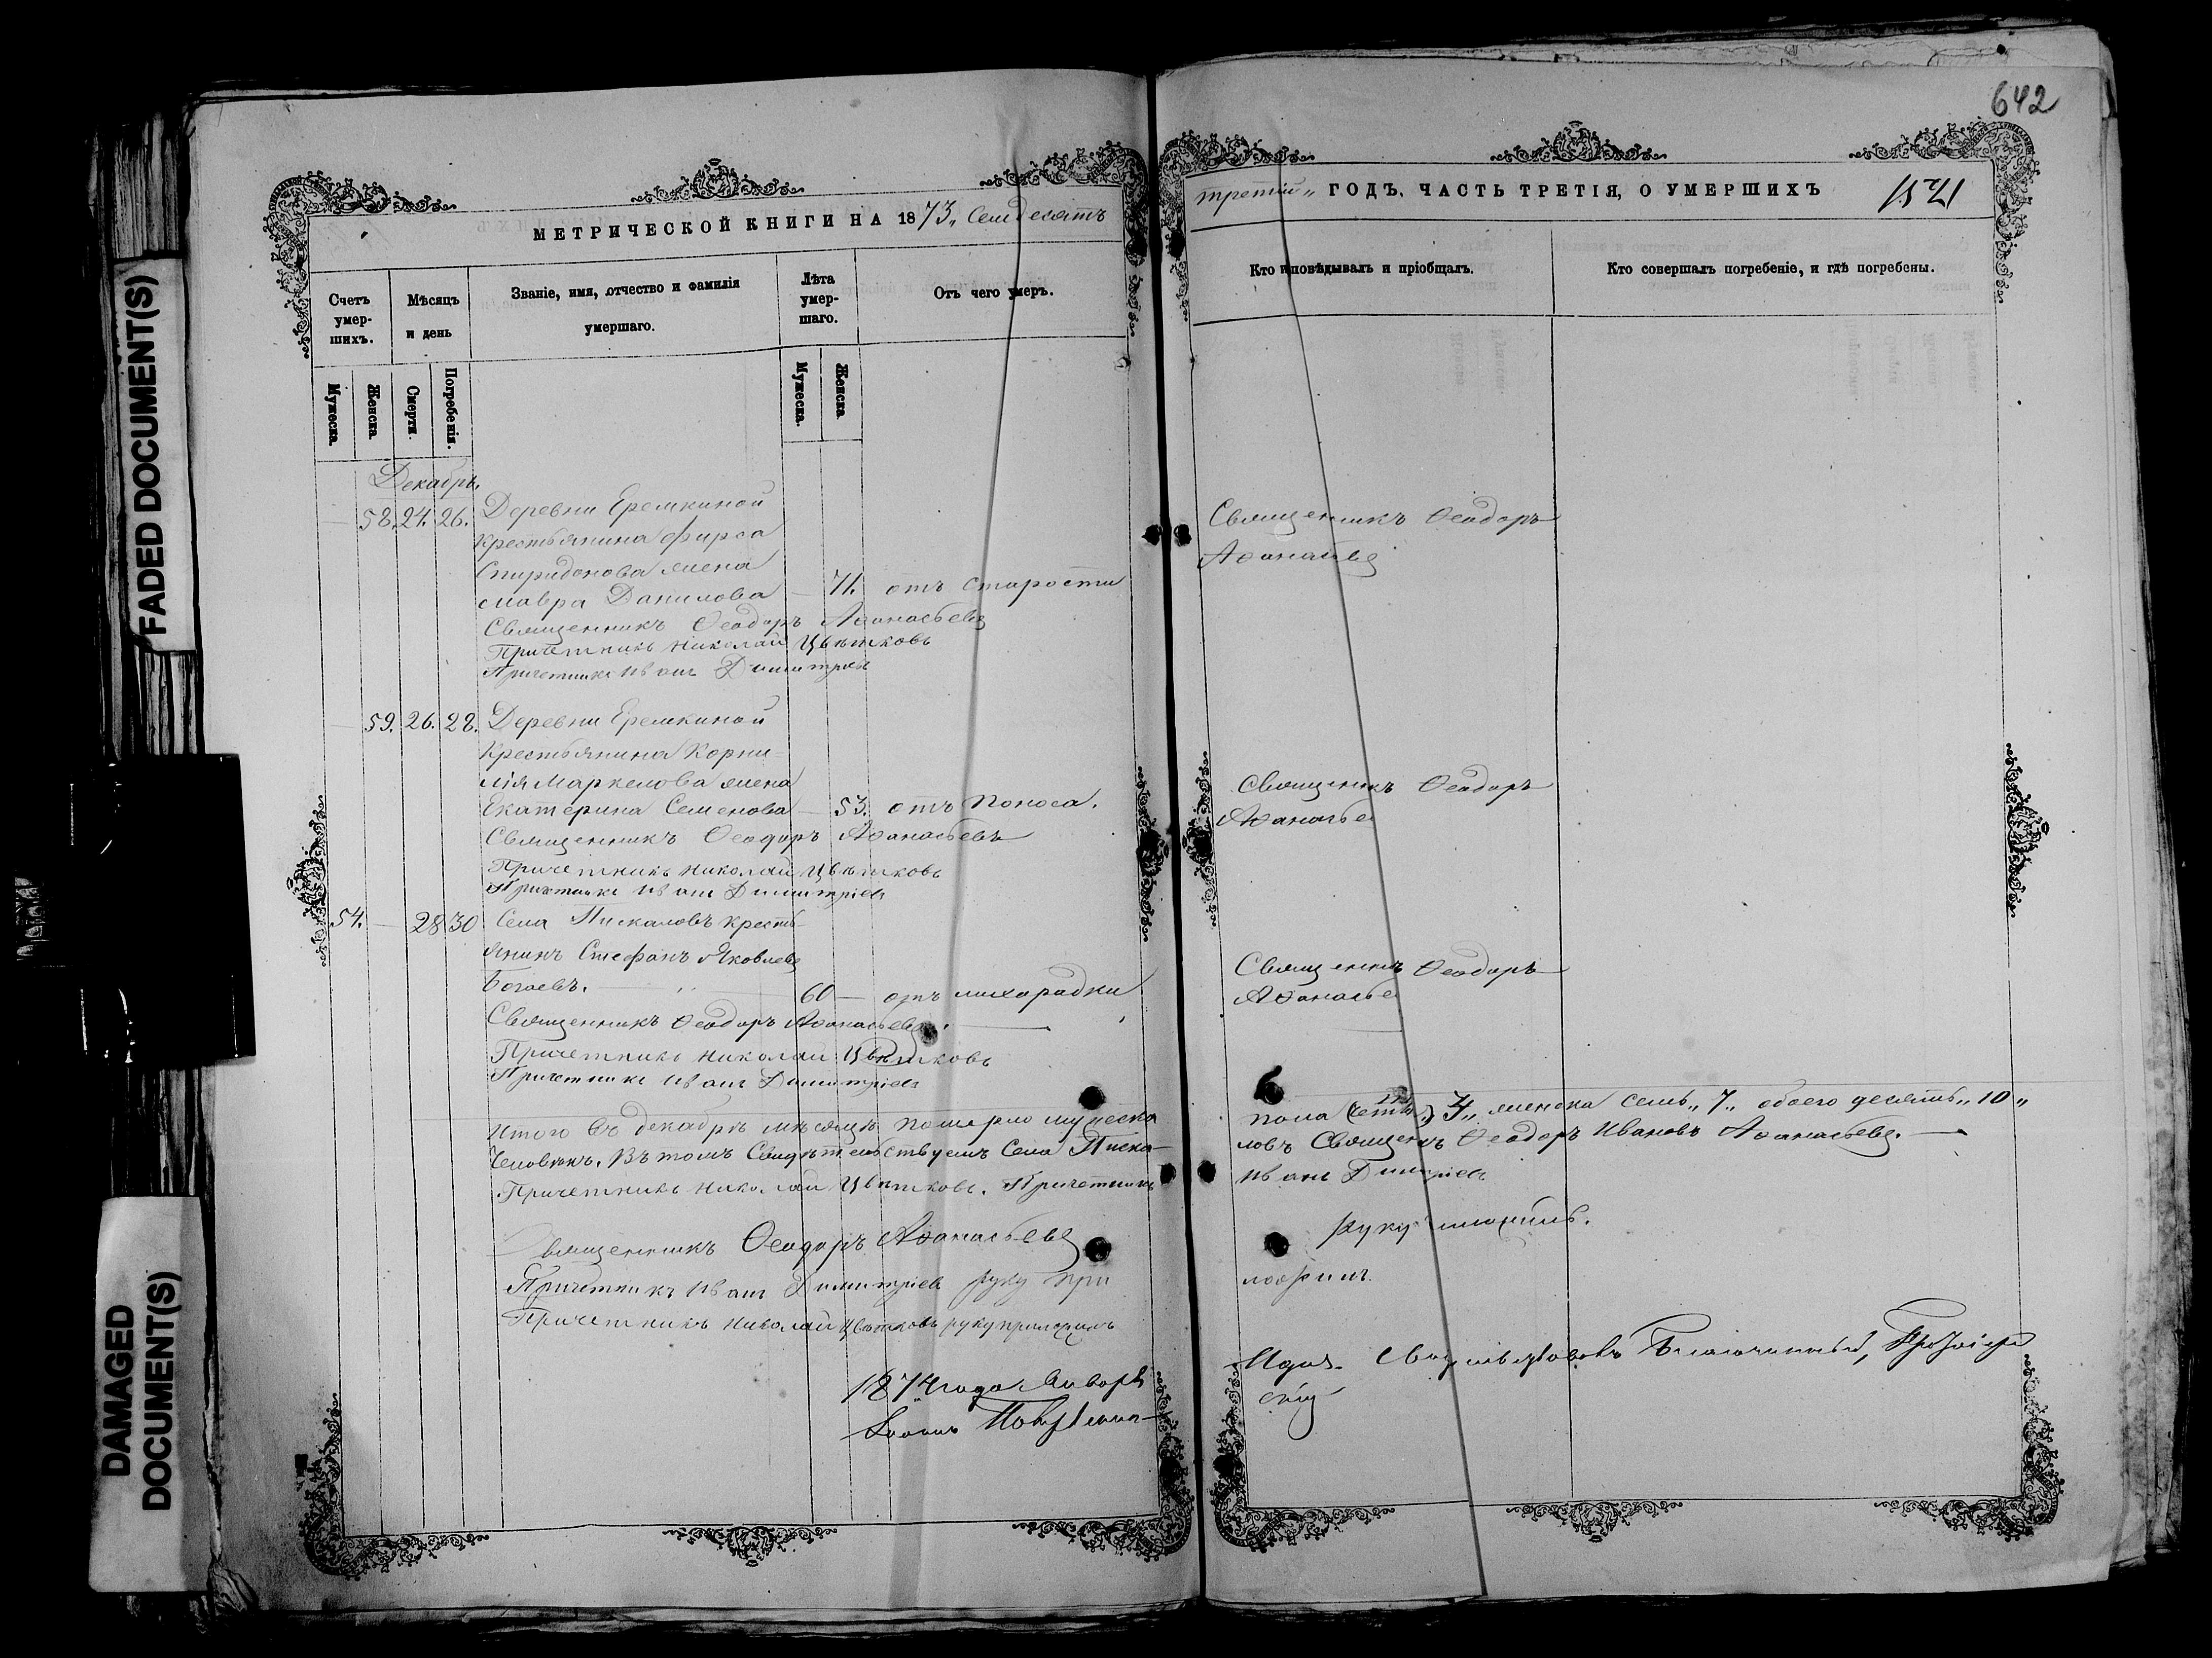 FADED DOCUMENT(S)
DAMAGED
DOCUMENT(S)
МЕТРИЧЕСКОЙ КНИГИ НА 1873„ Семдесятъ
Счетъ умер-шихъ.
Мѣсяцъ и день
Званіе, имя, отчество и фамилія умершаго.
Лѣта умер-шаго.
Отъ чего умеръ.
Мужеска.
Женска.
Смерти.
Погребенія.
Мужеска.
Женска.
Декабрь.
— 58. 24. 26. Деревни Еремкиной
крестьянина Фирса
Спиридонова жена
Мавра Данилова — 71. отъ старости
Священникъ Ѳеодоръ Аѳанасьевъ
Причетникъ Николай Цвѣтковъ
Причетникъ Иванъ Димитріевъ
— 59. 26. 28. Деревни Еремкиной
Крестьянина Корни-
лія Маркелова жена
Екатерина Семенова — 53. отъ поноса.
Священникъ Ѳеодоръ Аѳанасьевъ
Причетникъ Николай Цвѣтковъ
Причетникъ Иванъ Димитріевъ
54. — 28 30 Села Пискаловъ кресть-
янинъ Стефанъ Яковлевъ
Богаевъ. 60 — отъ лихорадки
Священникъ Ѳеодоръ Аѳанасьевъ.
Причетникъ Николай Цвѣтковъ
Причетникъ Иванъ Димитріевъ
Итого въ декабрѣ мѣсяцѣ померло мужеска
Человѣкъ. Въ томъ Свидѣтельствуемъ Села Писка-
Причетникъ Николай Цвѣтковъ. Причетникъ
Священникъ Ѳеодоръ Аѳанасьевъ
Причетникъ Иванъ Димитріевъ руку при
Причетникъ Николай Цвѣтковъ руку приложилъ
1874 года Января
642
третій„ ГОДЪ, ЧАСТЬ ТРЕТІЯ, О УМЕРШИХЪ
Кто исповѣдывалъ и пріобщалъ.
Кто совершалъ погребеніе, и гдѣ погребены.
Священникъ Ѳеодоръ
Аѳанасьевъ
Священникъ Ѳеодоръ
Аѳанасье
Священникъ Ѳеодоръ
Аѳанасье
пола женска семь„ 7„ обоего десять„ 10„
ловъ Священникъ Ѳеодоръ Ивановъ Аѳанасьевъ. —
Иванъ Димитріевъ
руку приложилъ.
ложилъ.
Благочинный,